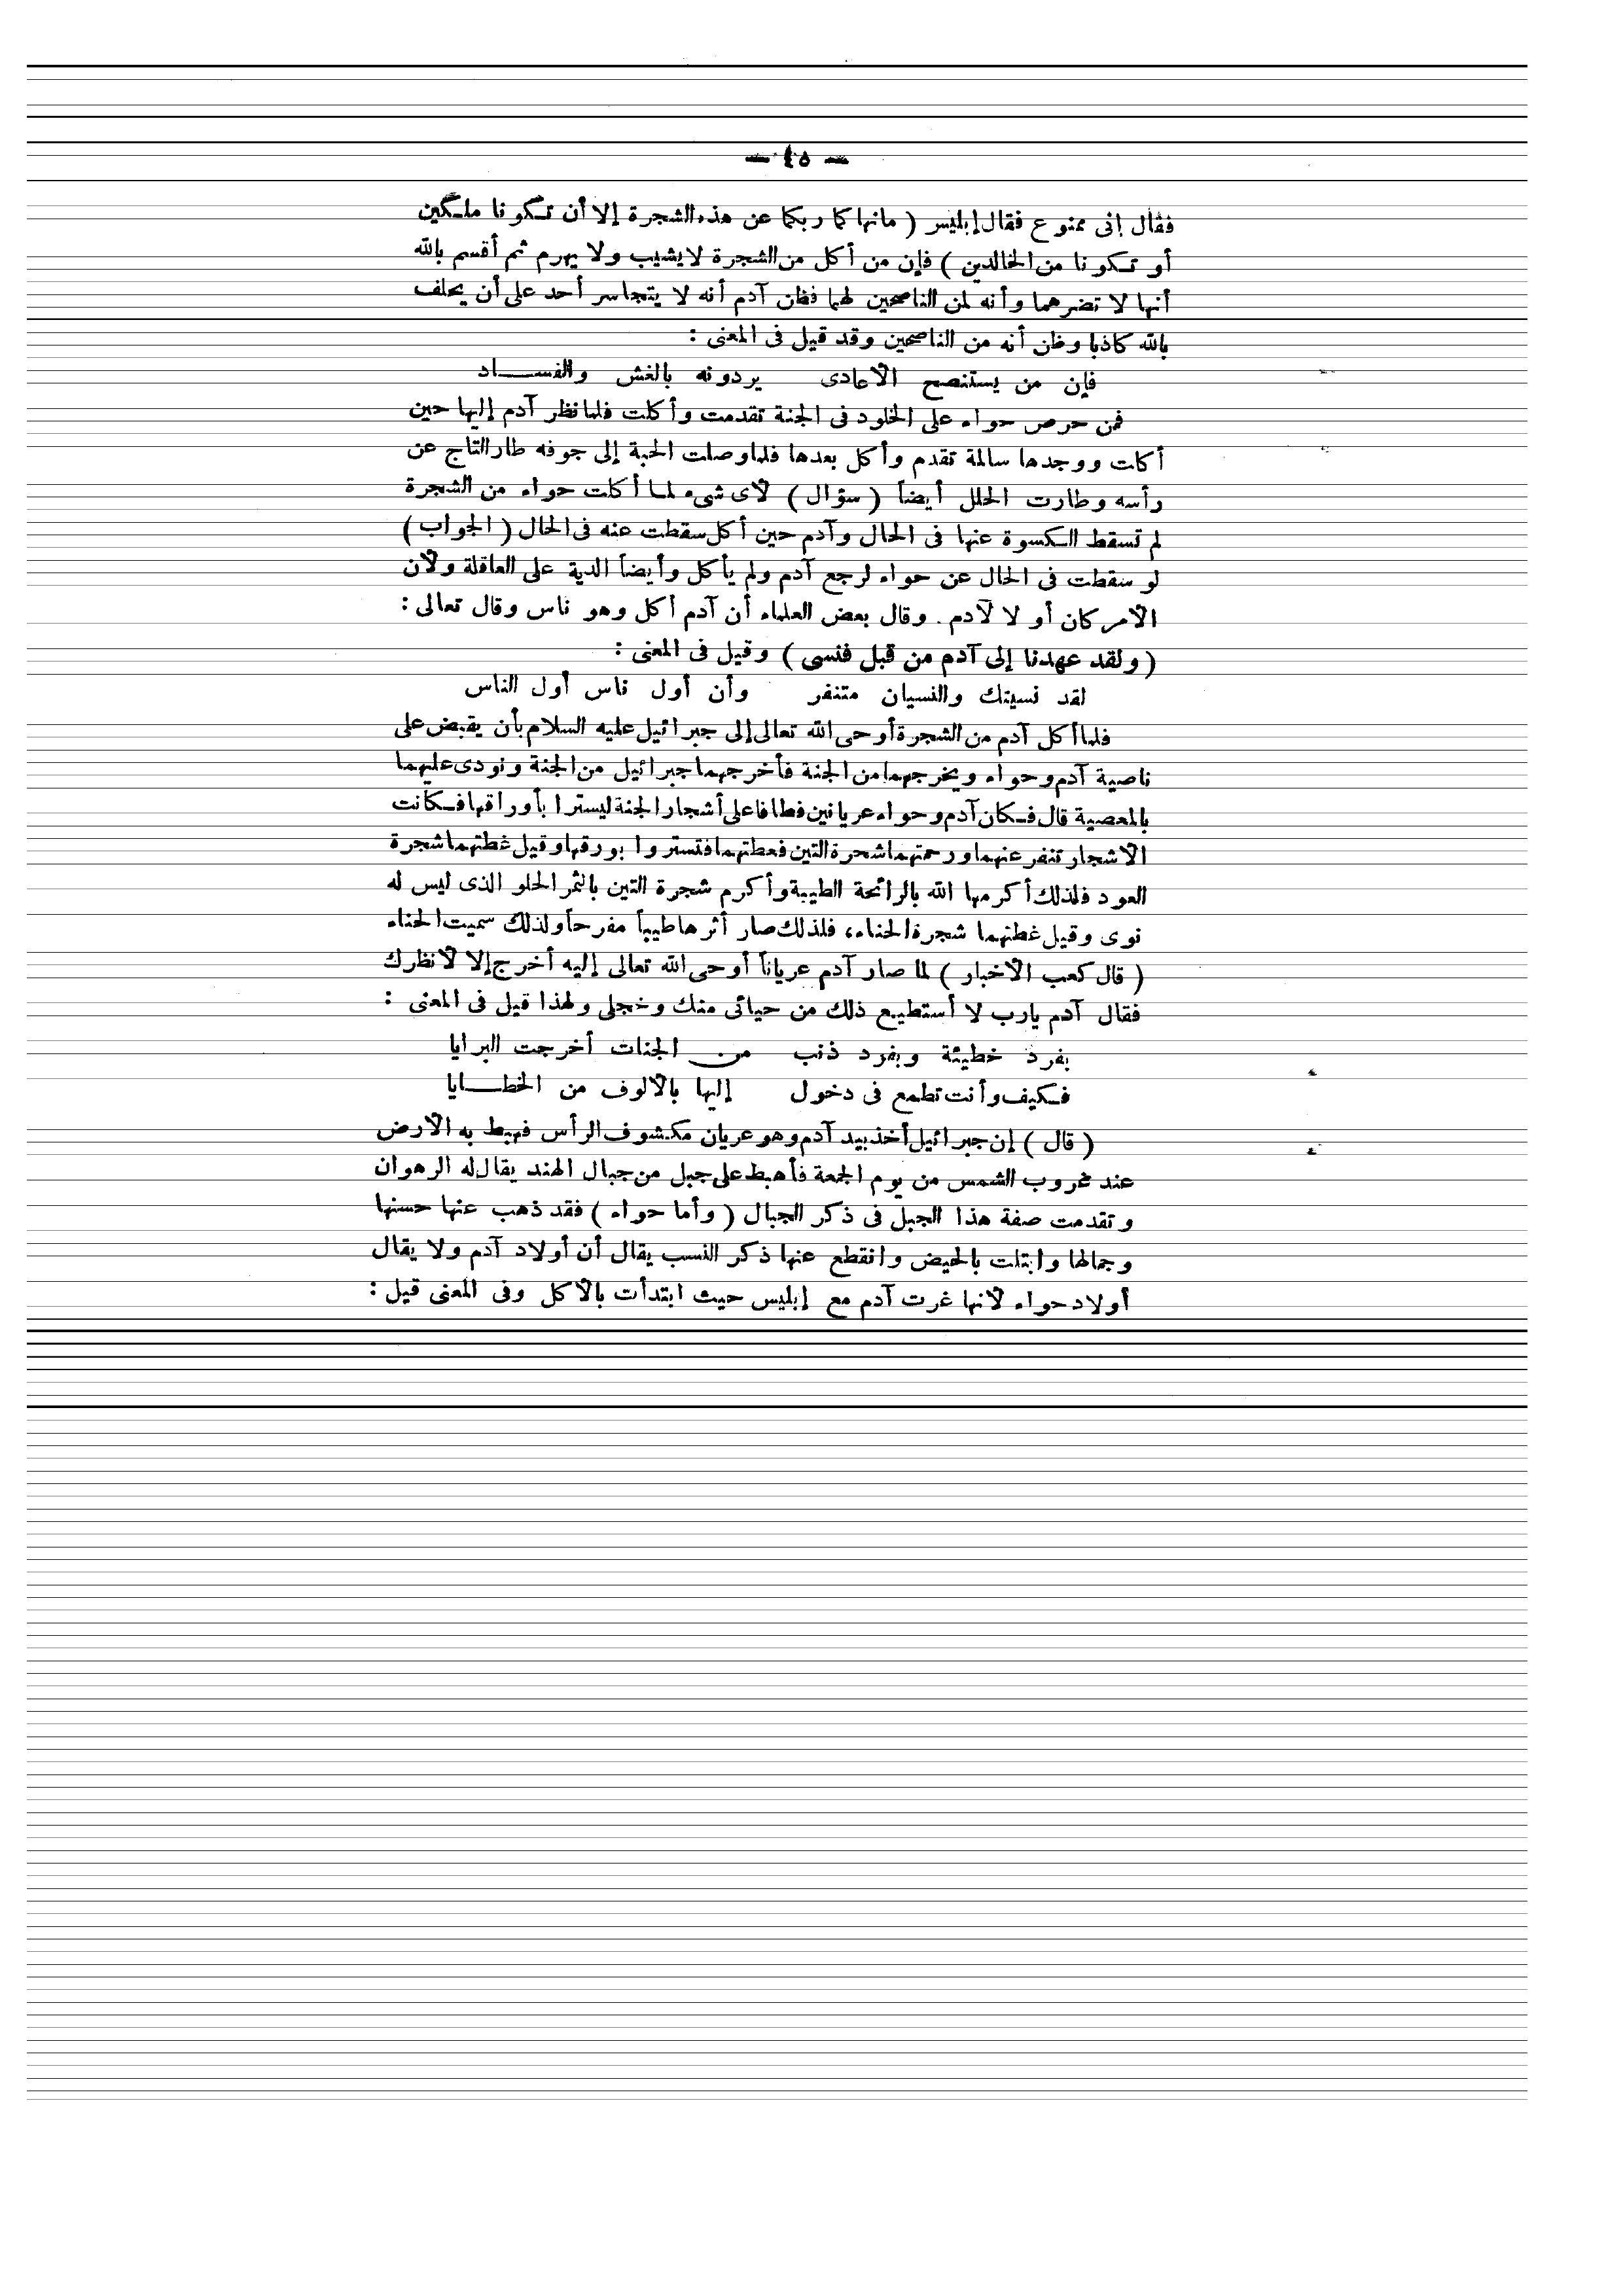 — ٤٥ —
فقال إنى ممنوع فقال إبليس ( مانها كما ربكما عن هذه الشجرة إلا أن تكونا ملكين
أو تكونا من الخالدين ) فإن من أكل من الشجرة لايشيب ولا يهرم ثم أقسم بالله
أنها لا تضرهما وأنه لمن الناصحين لهما فظن آدم أنه لا يتجاسر أحد على أن يحلف
بالله كاذبا وظن أنه من الناصحين وقد قيل فى المعنى :
فإن من يستنصح الأعادى يردونه بالغش والفســـاد
فمن حرص حواء على الخلود فى الجنة تقدمت وأكلت فلما نظر آدم إليها حين
أكلت ووجدها سالمة تقدم وأكل بعدها فلما وصلت الحبة إلى جوفه طار التاج عن
رأسه وطارت الحلل أيضاً ( سؤال ) لأى شىء لما أكلت حواء من الشجرة
لم تسقط الكسوة عنها فى الحال وآدم حين أكل سقطت عنه فى الحال ( الجواب )
لو سقطت فى الحال عن حواء لرجع آدم ولم يأكل وأيضاً الدية على العاقلة ولأن
الأمر كان أو لا لآدم . وقال بعض العلماء أن آدم أكل وهو ناس وقال تعالى :
( ولقد عهدنا إلى آدم من قبل فنسى ) وقيل فى المعنى :
لقد نسيتك والنسيان متنفر وأن أول ناس أول الناس
فلما أكل آدم من الشجرة أوحى الله تعالى إلى جبرائيل عليه السلام بأن يقبض على
ناصية آدم وحواء ويخرجهما من الجنة فأخرجهما جبرائيل من الجنة ونودى عليهما
بالمعصية قال فكان آدم وحواء عريانين فطافا على أشجار الجنة ليسترا بأوراقها فكانت
الأشجار تنفر عنهما ورحمتهما شجرة التين فغطتهما فتستروا بورقها وقيل غطتهما شجرة
العود فلذلك أكرمها الله بالرائحة الطيبة وأكرم شجرة التين بالثمر الحلو الذى ليس له
نوى وقيل غطتهما شجرة الحناء، فلذلك صار أثرها طيباً مفرحاً ولذلك سميت الحناء
( قال كعب الأخبار ) لما صار آدم عرياناً أوحى الله تعالى إليه أخرج إلا لأنظرك
فقال آدم يارب لا أستطيع ذلك من حيائى منك وخجلى ولهذا قيل فى المعنى :
بفرد خطيئة وبفرد ذنب من الجنات أخرجت البرايا
فكيف وأنت تطمع فى دخول إليها بالألوف من الخطـــايا
( قال ) إن جبرائيل أخذ بيد آدم وهو عريان مكشوف الرأس فهبط به الأرض
عند غروب الشمس من يوم الجمعة فأهبط على جبل من جبال الهند يقال له الرهوان
وتقدمت صفة هذا الجبل فى ذكر الجبال ( وأما حواء ) فقد ذهب عنها حسنها
وجمالها وابتلت بالحيض وانقطع عنها ذكر النسب يقال أن أولاد آدم ولا يقال
أولاد حواء لأنها غرت آدم مع إبليس حيث ابتدأت بالأكل وفى المعنى قيل :